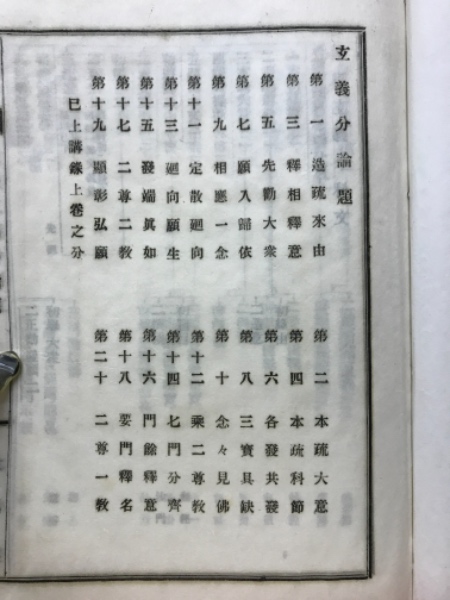 玄義分論題
第一 造疏來由
第二 本疏大意
第三 釋相釋意
第四 本疏科節
第五 先勸大衆
第六 各發共發
第七 願入歸依
第八 三寶具缺
第九 相應一念
第十 念々見佛
第十一 定散廻向
第十二 乘二尊教
第十三 廻向願生
第十四 七門分齊
第十五 發端眞如
第十六 門餘釋意
第十七 二尊二教
第十八 要門釋名
第十九 顯彰弘願
第二十 二尊一教
巳上講錄上卷之分